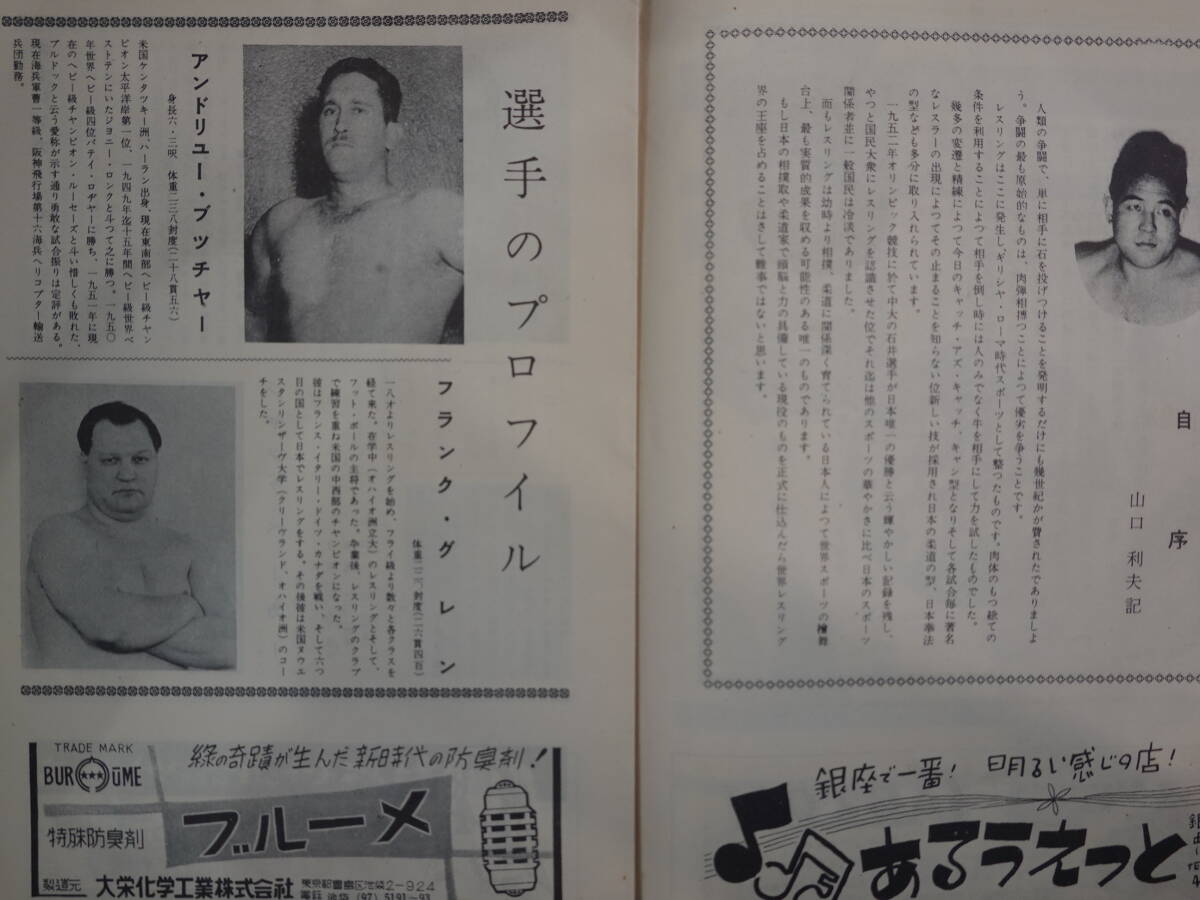 自序
山口利夫記
人類の争闘で、単に相手に石を投げつけることを発明するだけにも幾世紀かが費されたでありましょ
う。争闘の最も原始的なものは、肉弾相搏つことによつて優劣を争うことです。
レスリングはここに発生し、ギリシヤ・ローマ時代スポーツとして整つたものです。肉体のもつ総ての
条件を利用することによつて相手を倒し時には人のみでなく牛を相手にして力を試したものでした。
幾多の変遷と精練によつて今日のキャッチ・アズ・キャッチ、キャン型となりそして各試合毎に著名
なレスラーの出現によつてその止まることを知らない位新しい技が採用され日本の柔道の型、日本拳法
の型なども多分に取り入れられています。
一九五二年オリンピック競技に於て中大の石井選手が日本唯一の優勝と云う輝やかしい記録を残し、
やつと国民大衆にレスリングを認識させた位でそれ迄は他のスポーツの華やかさに比べ日本のスポーツ
関係者並に一般国民は冷淡でありました。
而もレスリングは幼時より相撲、柔道に関係深く育てられている日本人によつて世界スポーツの檜舞
台上、最も実質的成果を収める可能性のある唯一のものであります。
もし日本の相撲取や柔道家で頭脳と力の具備している現役のものを正式に仕込んだら世界レスリング
界の王座を占めることはさして難事ではないと思います。
銀座で一番! 明るい感じの店!
あるうえっと
選手のプロフイル
アンドリユー・ブツチヤー
身長六・三呎 体重二三八封度(二十八貫五六)
米国ケンタツキー洲、ハーラン出身、現在東南部ヘビー級チヤン
ピオン太平洋岸第一位、一九四九年迄十五年間ヘビー級世界ベ
ストテンにいたジヨニー・ロンクと斗つて之に勝つ。一九五〇
年世界ヘビー級四位パテイ・ロヂヤーに勝ち、一九五一年に現
在のヘビー級チヤンピオン・ルーセーズと斗い惜しくも敗れた、
ブルドツクと云う愛称が示す通り勇敢な試合振りは定評がある。
現在海兵軍曹一等級、阪神飛行場第十六海兵ヘリコプター輸送
兵団勤務。
フランク・グレン
体重二二〇封度(二六貫四百)
一八才よりレスリングを始め、フライ級より数々と各クラスを
経て来た。在学中(オハイオ洲立大)のレスリングとそして、
フット・ボールの主将であった。卒業後、レスリングのクラブ
で練習を重ね米国の中西部のチヤンピオンになった。
彼はフランス・イタリー・ドイツ・カナダを戦い、そして六つ
目の国として日本でレスリングをする。その後彼は米国ヌウエ
スタンリンザーヴ大学(クリーヴランド、オハイオ洲)のコー
チをした。
TRADE MARK
BURŪME
緑の奇蹟が生んだ新時代の防臭剤!
特殊防臭剤
ブルーメ
製造元 大栄化学工業株式会社
東京都豊島区池袋2-924
電話 池袋(97)5191-93